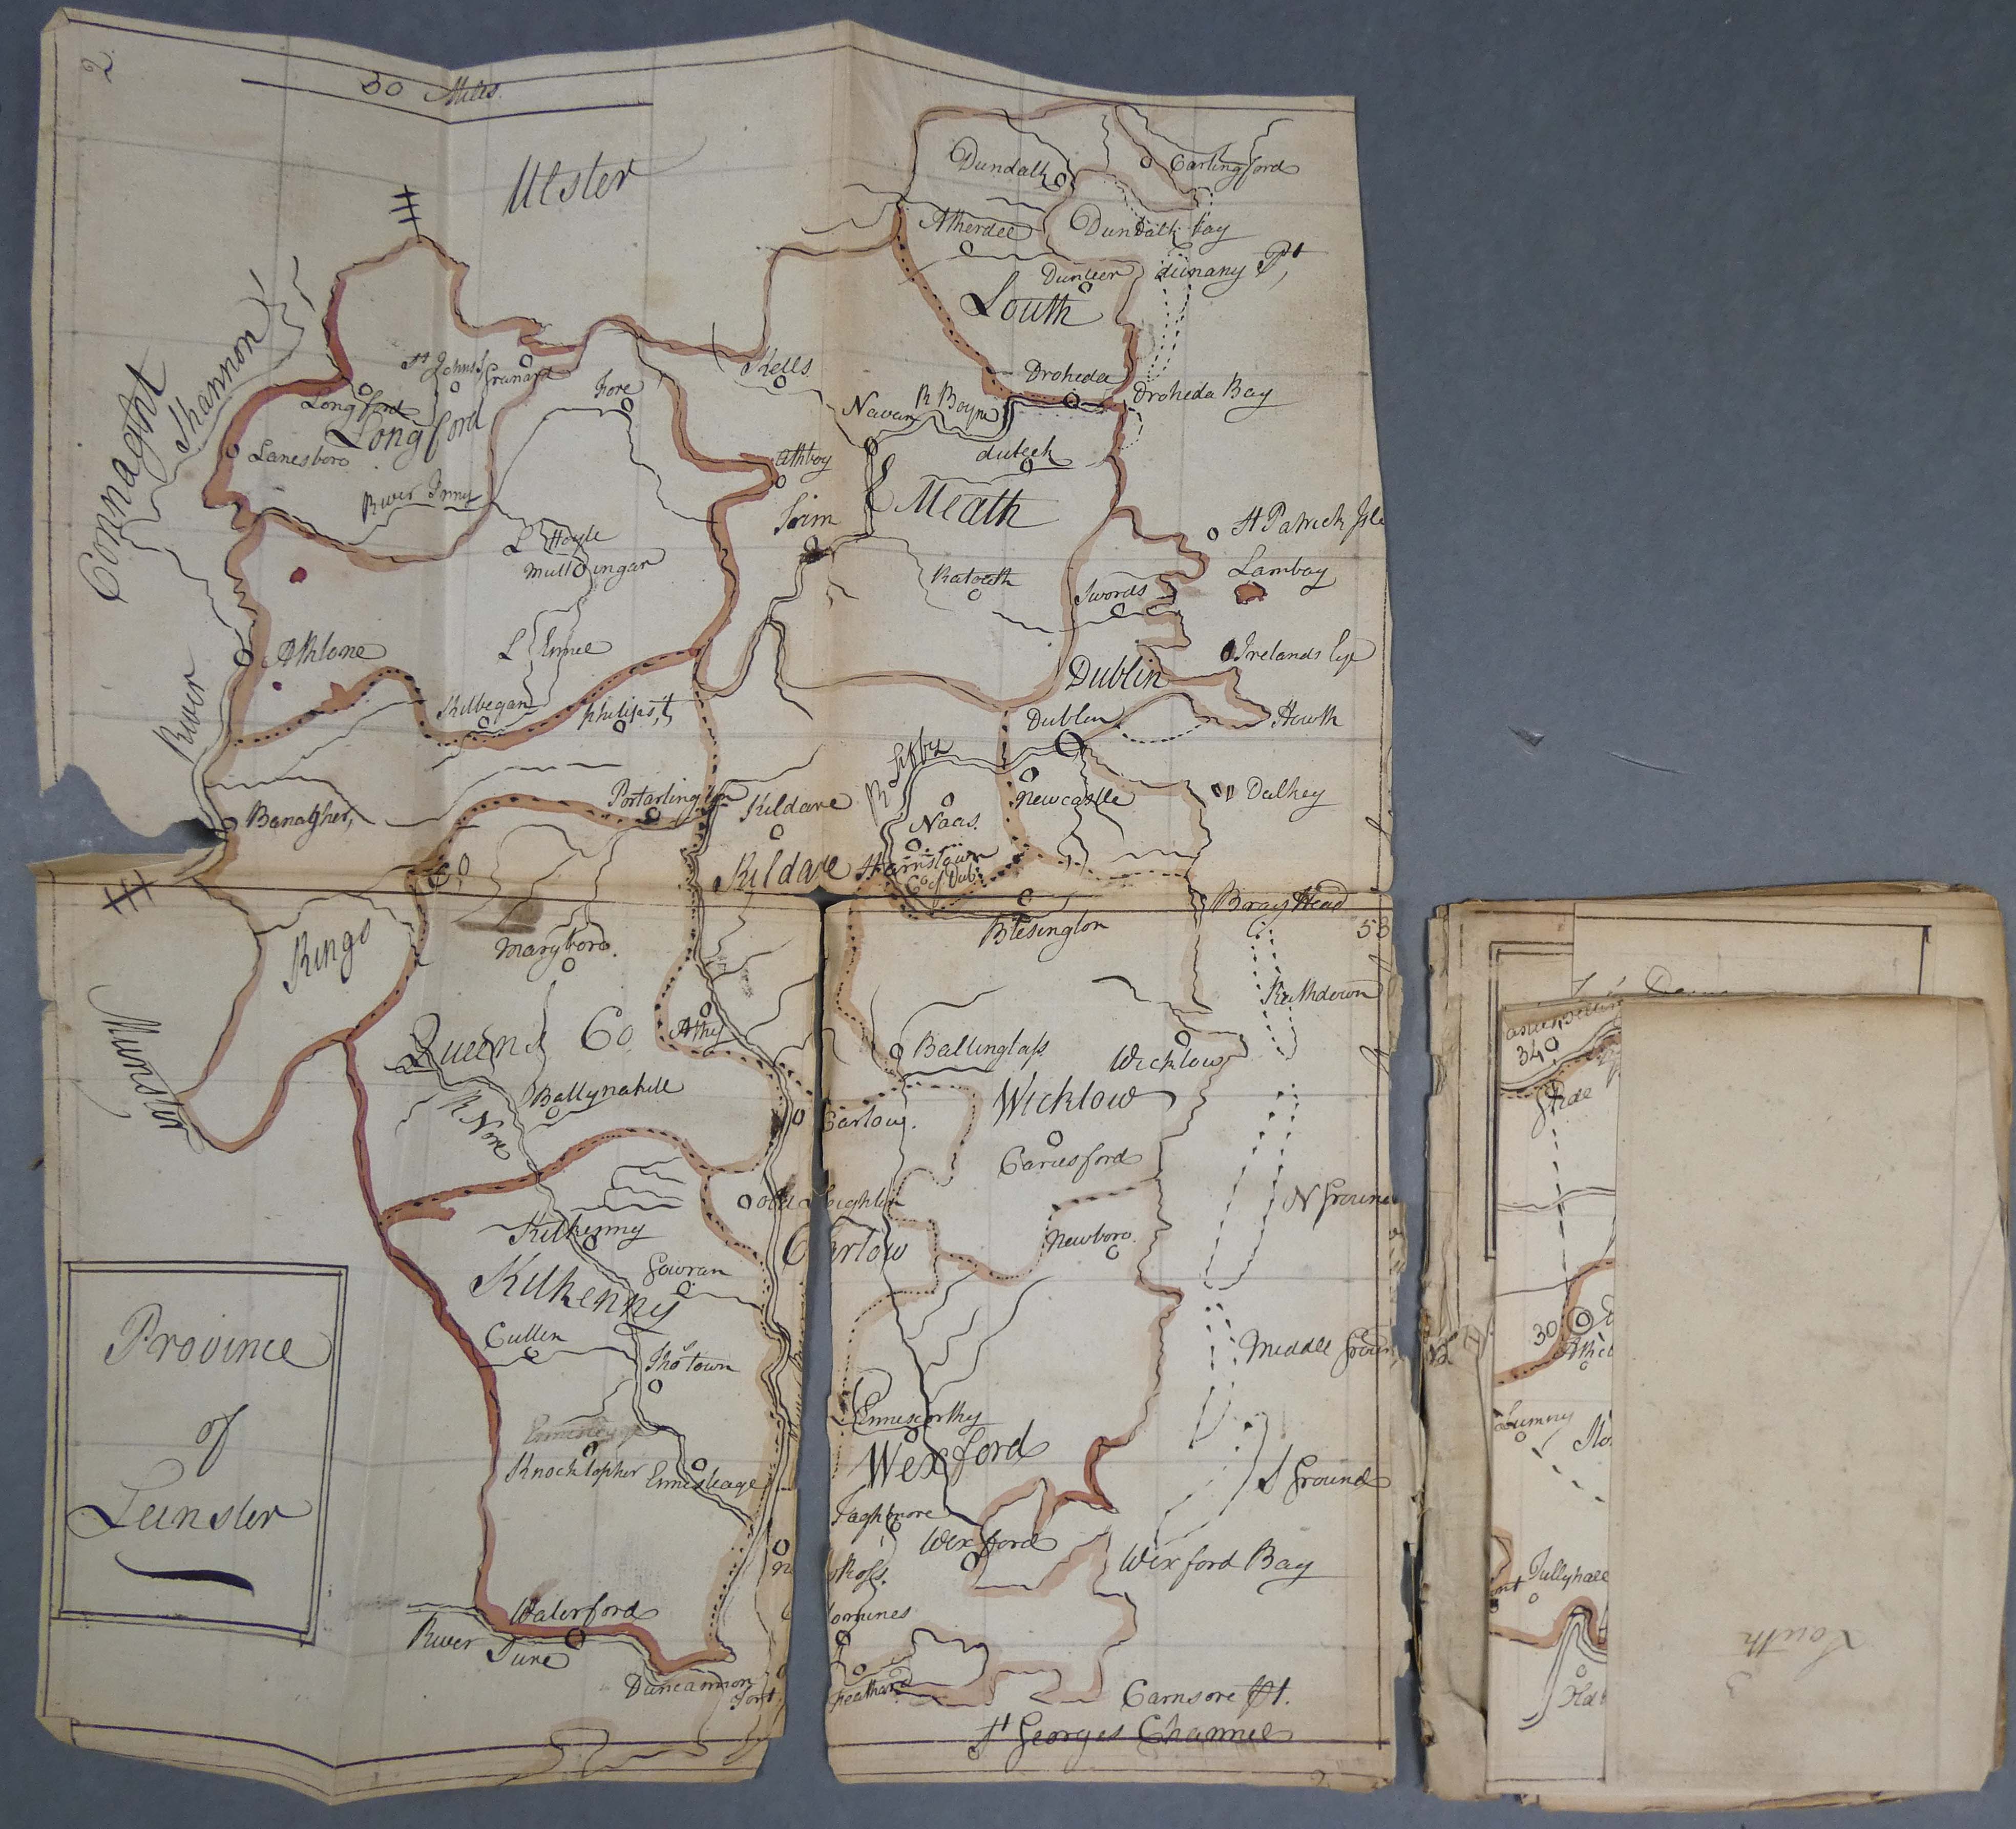 2
30 Miles.
Ulster
Dundalk
Carlingford
Atherdee
Dundalk Bay
Dunleer
dunany Pt,
Louth
Connaght
River Shannon
St Johns
Granard
Longford
Longford
Lanesboro
Fore
Kells
Navan
R Boyne
Droheda
Droheda Bay
duleek
Athboy
Trim
Meath
River Inny
L Hoyle
Mullingar
St Patrick Isle
Lambay
Ratoath
Swords
Athlone
L Ennel
Irelands Eye
Dublin
Kilbegan
Philipst,
Dublin
Howth
R Liffey
Banagher,
Portarlington
Kildare
Newcastle
Dalkey
Naas.
Kildare
Co. of Dub.
Co.
Kings
Maryboro.
Blesington
Bray Head
53
Rathdown
Munster
Queens Co
Athy
Ballinglass
Wicklow
R Nore
Ballynakill
Wicklow
Carlow.
Cariesford
old Leighlin
N Ground
Kilkenny
Carlow
Newboro.
Gowran
Kilkenny
Cullen
Thos town
Middle Groun
Province
of
Leinster
Enniscorthy
Wexford
Knocktopher
Ennisteage
S Ground
Taghmore
Wexford
Wexford Bay
Ross.
Waterford
River Sure
Duncannon
Fort
omines
Feathard
Carnsore Pt.
St Georges Channel
340
30
Tullyhall
Louth
3